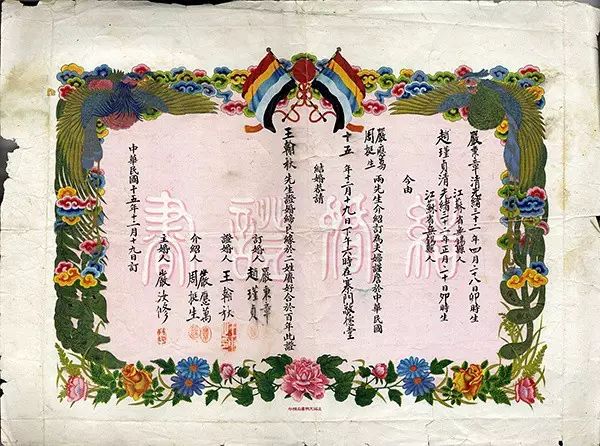 嚴東章清光緒三十二年四月二八卯時生
江蘇省無錫縣人
趙瑾貞清光緒三十二年正月二十日卯時生
江蘇省無錫縣人
今由
嚴應萬
周挺生
兩先生介紹訂為夫婦謹詹於中華民國
十五年十一月十九日下午六時在寨門敬修堂
結婚恭請
王翰秋先生證婚締良緣於二姓賡好合於百年此證
訂婚人嚴東章
趙瑾貞
證婚人王翰秋
介紹人嚴應萬
周挺生
主婚人嚴汝修
中華民國十五年十一月十九日訂
結婚證書